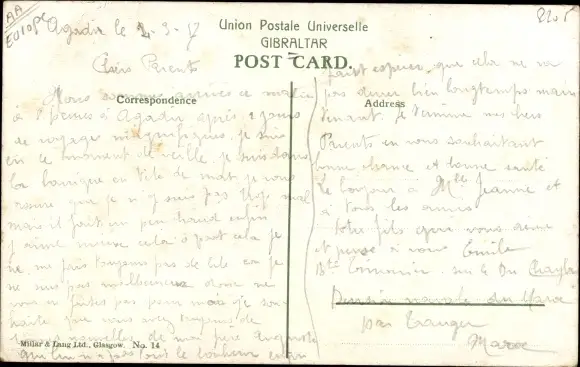 AA
EUROPE
Agadir le 2-3-17
Union Postale Universelle
GIBRALTAR
POST CARD.
Correspondence
Address
Chers Parents
Nous sommes arrivés ce matin
à heures à Agadir après 2 jours
de voyage magnifiques, je suis
en ce moment de veille, je suis dans
la barrique en tête de mat je vous
assure que je n'y suis pas trop mal
mais il fait un peu chaud enfin
j'aime mieux cela à part cela je
ne me fais toujours pas de bile car je
ne suis pas malheureux donc ne
vous en faites pas pour moi je sou-
haite que vous avez toujours de
nouvelles de mon père Auguste
tout le bonheur
faut espérer que cela ne va
pas durer bien longtemps main
tenant. Je termine mes chers
Parents en vous souhaitant
bonne chance et bonne santé
le bonjour à Mlle Jeanne et
à tous les amis
Votre fils qui vous aime
et pense à vous Emile
sur le Du Chayla
Division navale du Maroc
par Tanger
Maroc
Millar & Lang Ltd., Glasgow. No. 14